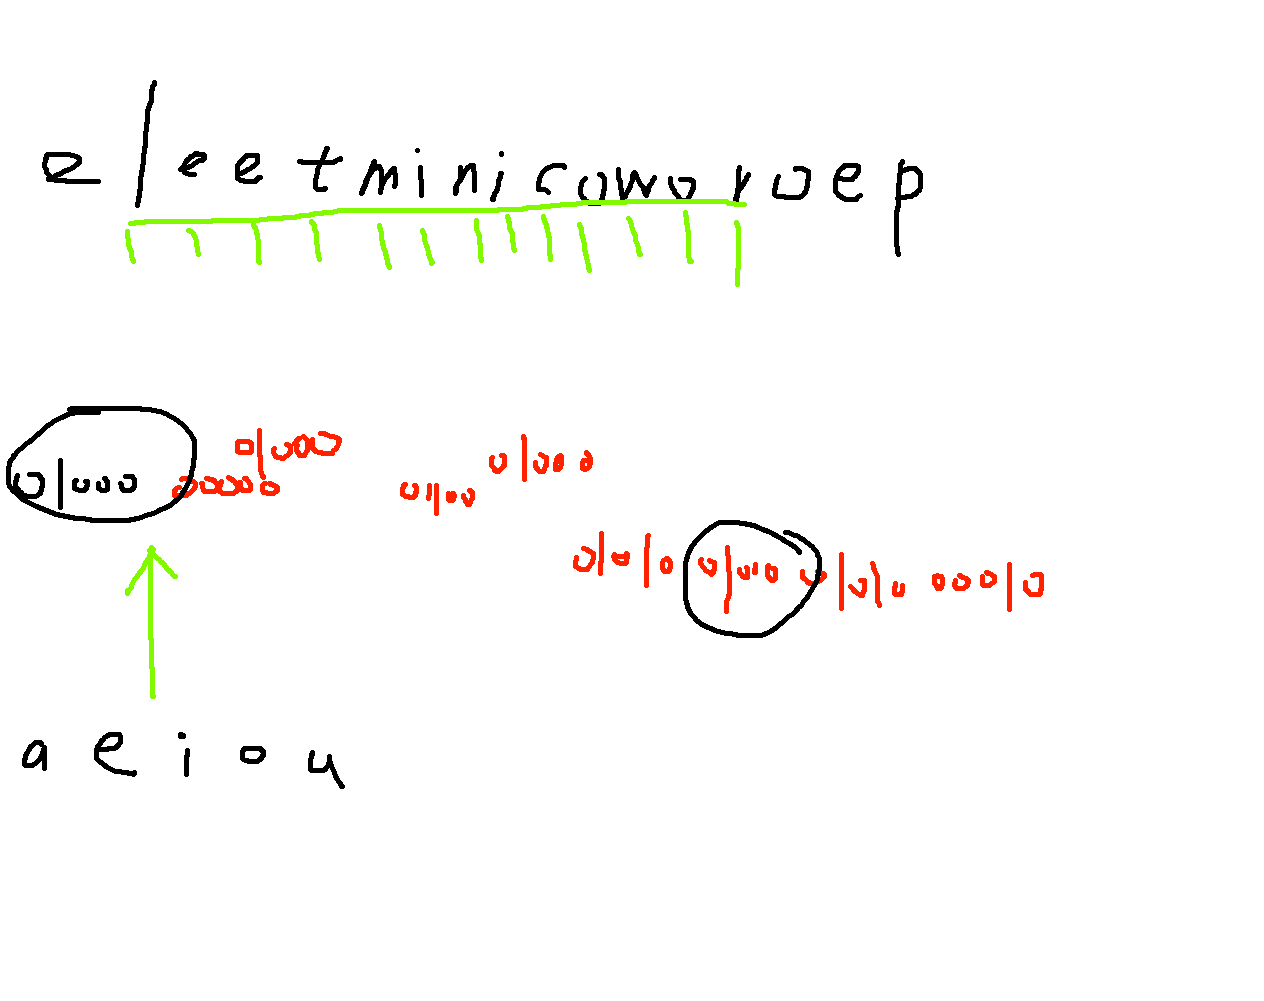 eleetminicoworoep
01000 00000 01000 01100 01000
01010 01010 01010 00010
a e i o u